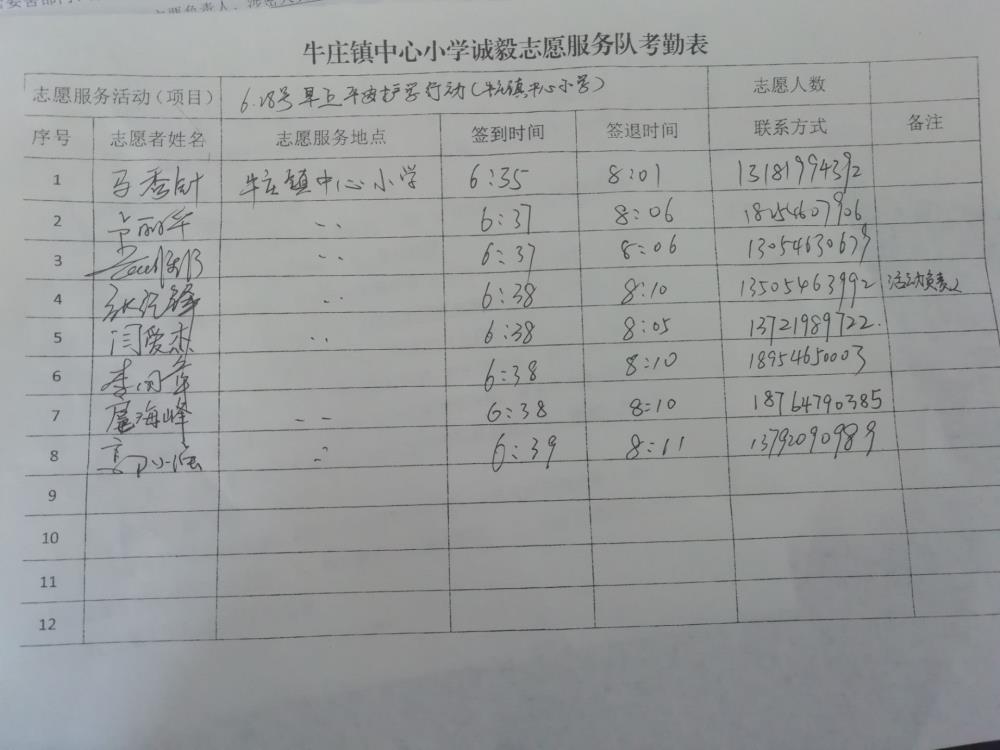 牛庄镇中心小学诚毅志愿服务队考勤表
志愿服务活动(项目) 6.28号早上平安护学行动(牛庄镇中心小学) 志愿人数
序号 志愿者姓名 志愿服务地点 签到时间 签退时间 联系方式 备注
1 牛庄镇中心小学 6:35 8:01 13181994392
2 〃 6:37 8:06 18254607906
3 〃 6:37 8:06 13054630679
4 〃 6:38 8:10 13505463992 活动负责人
5 闫爱杰 〃 6:38 8:05 13721989722
6 6:38 8:10 18954650003
7 屈海峰 〃 6:38 8:10 18764790385
8 〃 6:39 8:11 13792090989
9
10
11
12